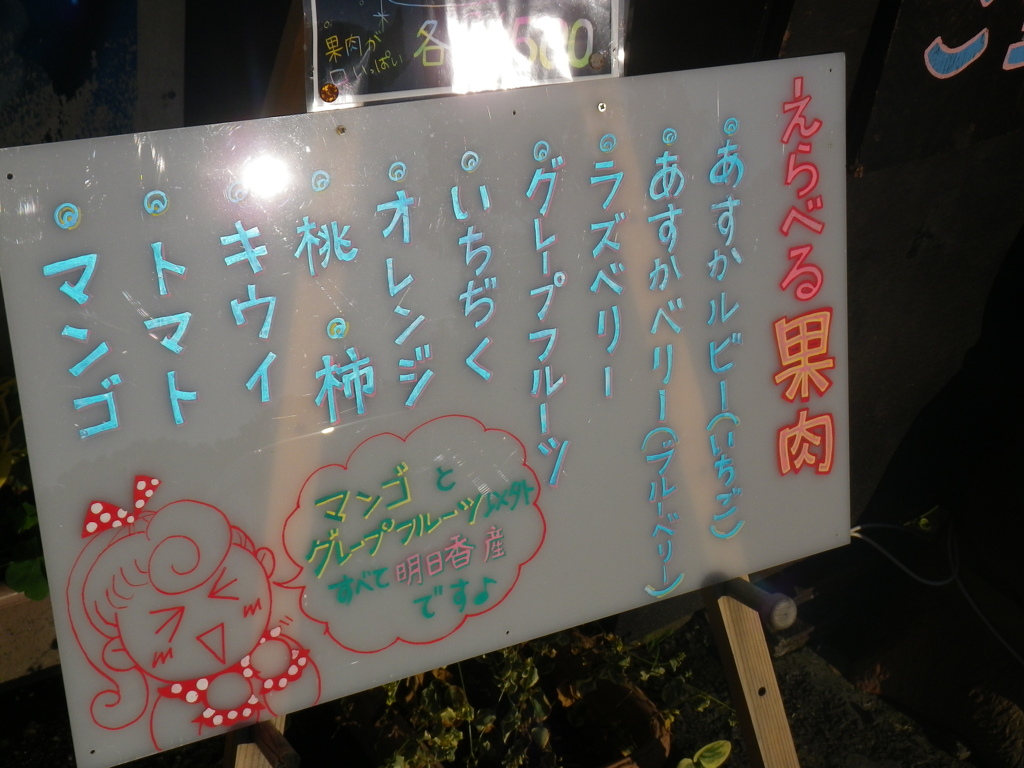 果肉が
いっぱい
各
500
えらべる果肉
あすかルビー(いちご)
あすかベリー(ブルーベリー)
ラズベリー
グレープフルーツ
いちぢく
オレンジ
桃
柿
キウイ
トマト
マンゴ
マンゴと
グレープフルーツ以外
すべて明日香産
です♪